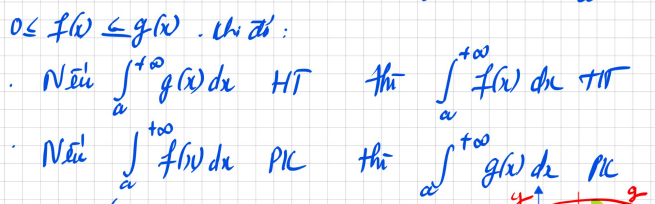 0 ≤ f(x) ≤ g(x). Khi đó:
· Nếu ∫ₐ^{+∞} g(x) dx HT thì ∫ₐ^{+∞} f(x) dx HT
· Nếu ∫ₐ^{+∞} f(x) dx PK thì ∫ₐ^{+∞} g(x) dx PK
y g